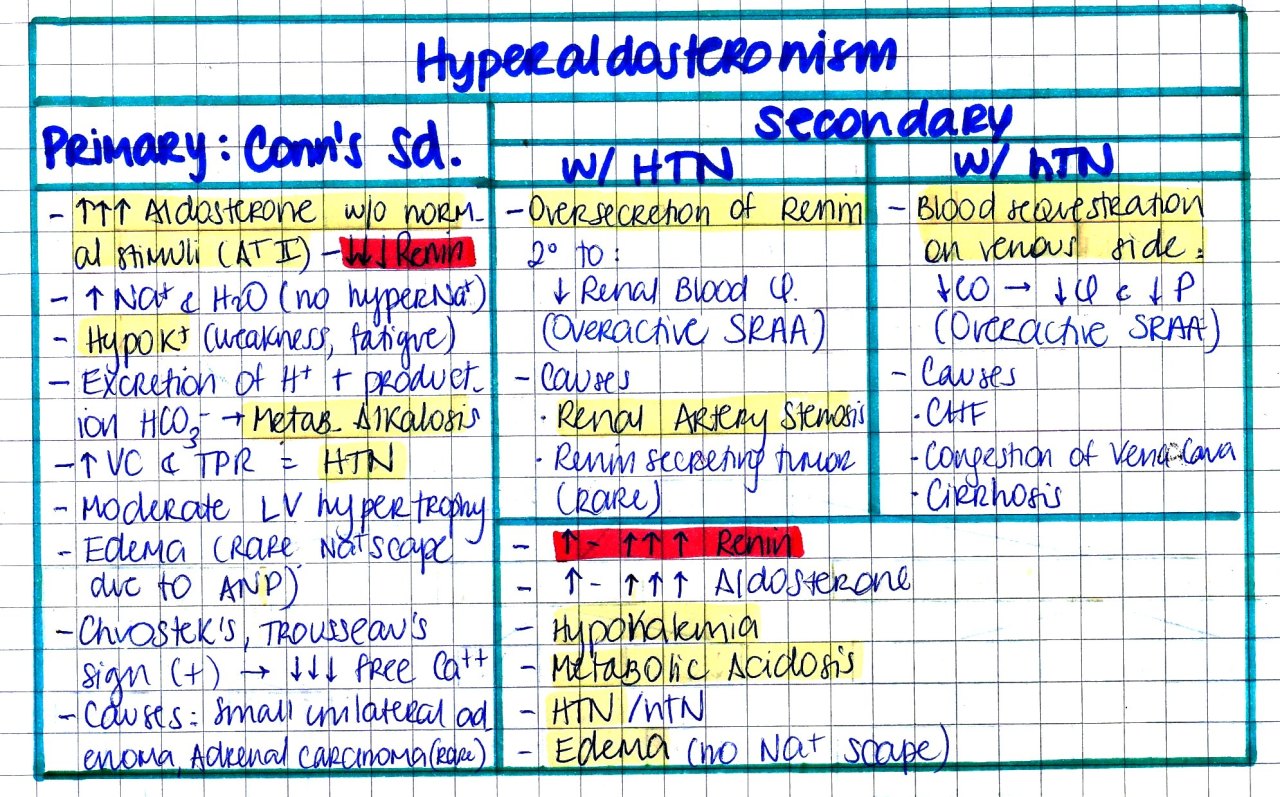 Hyperaldosteronism
Primary: Conn's Sd.
- ↑↑↑ Aldosterone w/o norm-
al stimuli (AT II) - ↓↓↓ Renin
- ↑ Na⁺ & H2O (no hyperNa⁺)
- Hypok⁺ (weakness, fatigue)
- Excretion of H⁺ + product-
ion HCO₃⁻ → Metab. Alkalosis
- ↑ VC & TPR = HTN
- Moderate LV hypertrophy
- Edema (Rare Na⁺scape
due to ANP)
- Chvostek's, Trousseau's
sign (+) → ↓↓↓ free Ca⁺⁺
- Causes: small unilateral ad
enoma, Adrenal carcinoma (rare)
secondary
w/ HTN
- Oversecretion of Renin
2° to:
↓ Renal Blood φ.
(Overactive SRAA)
- Causes
· Renal Artery Stenosis
· Renin secreting tumor
(rare)
w/ hTN
- Blood sequestration
on venous side:
↓CO → ↓φ & ↓P
(Overactive SRAA)
- Causes
· CHF
· Congestion of Vena Cava
· Cirrhosis
- ↑ - ↑↑↑ Renin
- ↑ - ↑↑↑ Aldosterone
- Hypokalemia
- Metabolic Acidosis
- HTN/hTN
- Edema (no Na⁺ scape)